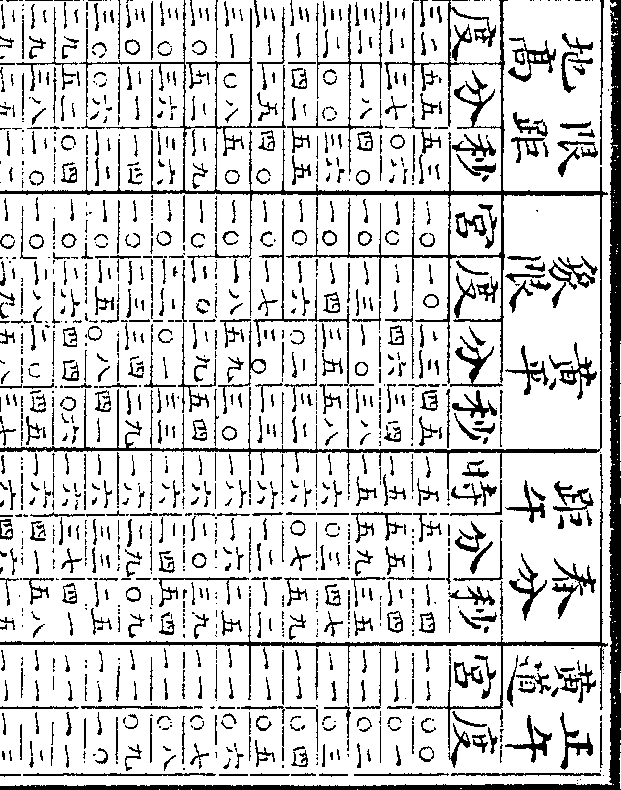 正午黃道 春分距午 黃平象限 限距地高
宮 度 時 分 秒 宮 度 分 秒 度 分 秒
一一 〇〇 一五 五一 一四 一〇 一〇 二三 四五 三二 五五 五三
一一 〇一 一五 五五 二四 一〇 一一 四六 三四 三二 三七 〇六
一一 〇二 一五 五九 三五 一〇 一三 一〇 三八 三二 一八 四〇
一一 〇三 一六 〇三 四七 一〇 一四 三五 五八 三二 〇〇 三六
一一 〇四 一六 〇七 五九 一〇 一六 〇二 三二 三一 四二 五五
一一 〇五 一六 一二 一二 一〇 一七 三〇 二三 三一 二五 四〇
一一 〇六 一六 一六 二五 一〇 一八 五九 三〇 三一 〇八 五〇
一一 〇七 一六 二〇 三九 一〇 二〇 二九 五四 三〇 五二 二九
一一 〇八 一六 二四 五四 一〇 二二 〇一 三三 三〇 三六 三六
一一 〇九 一六 二九 〇九 一〇 二三 三四 二九 三〇 二一 一四
一一 一〇 一六 三三 二五 一〇 二五 〇八 四一 三〇 〇六 二二
一一 一一 一六 三七 四一 一〇 二六 四四 〇六 二九 五二 〇四
一一 一二 一六 四一 五八 一〇 二八 二〇 四五 二九 三八 二〇